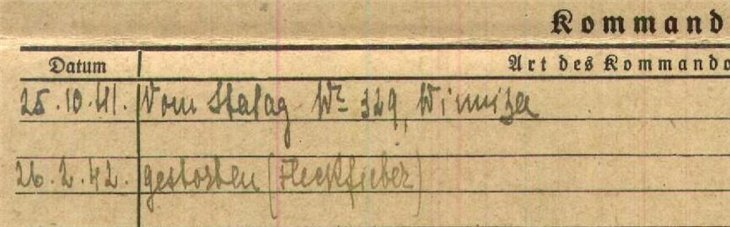 Kommand
Datum
Art des Kommando
25.10.41. Vom Stalag Nr 329, Winniza
26.2.42. gestorben (Fleckfieber)